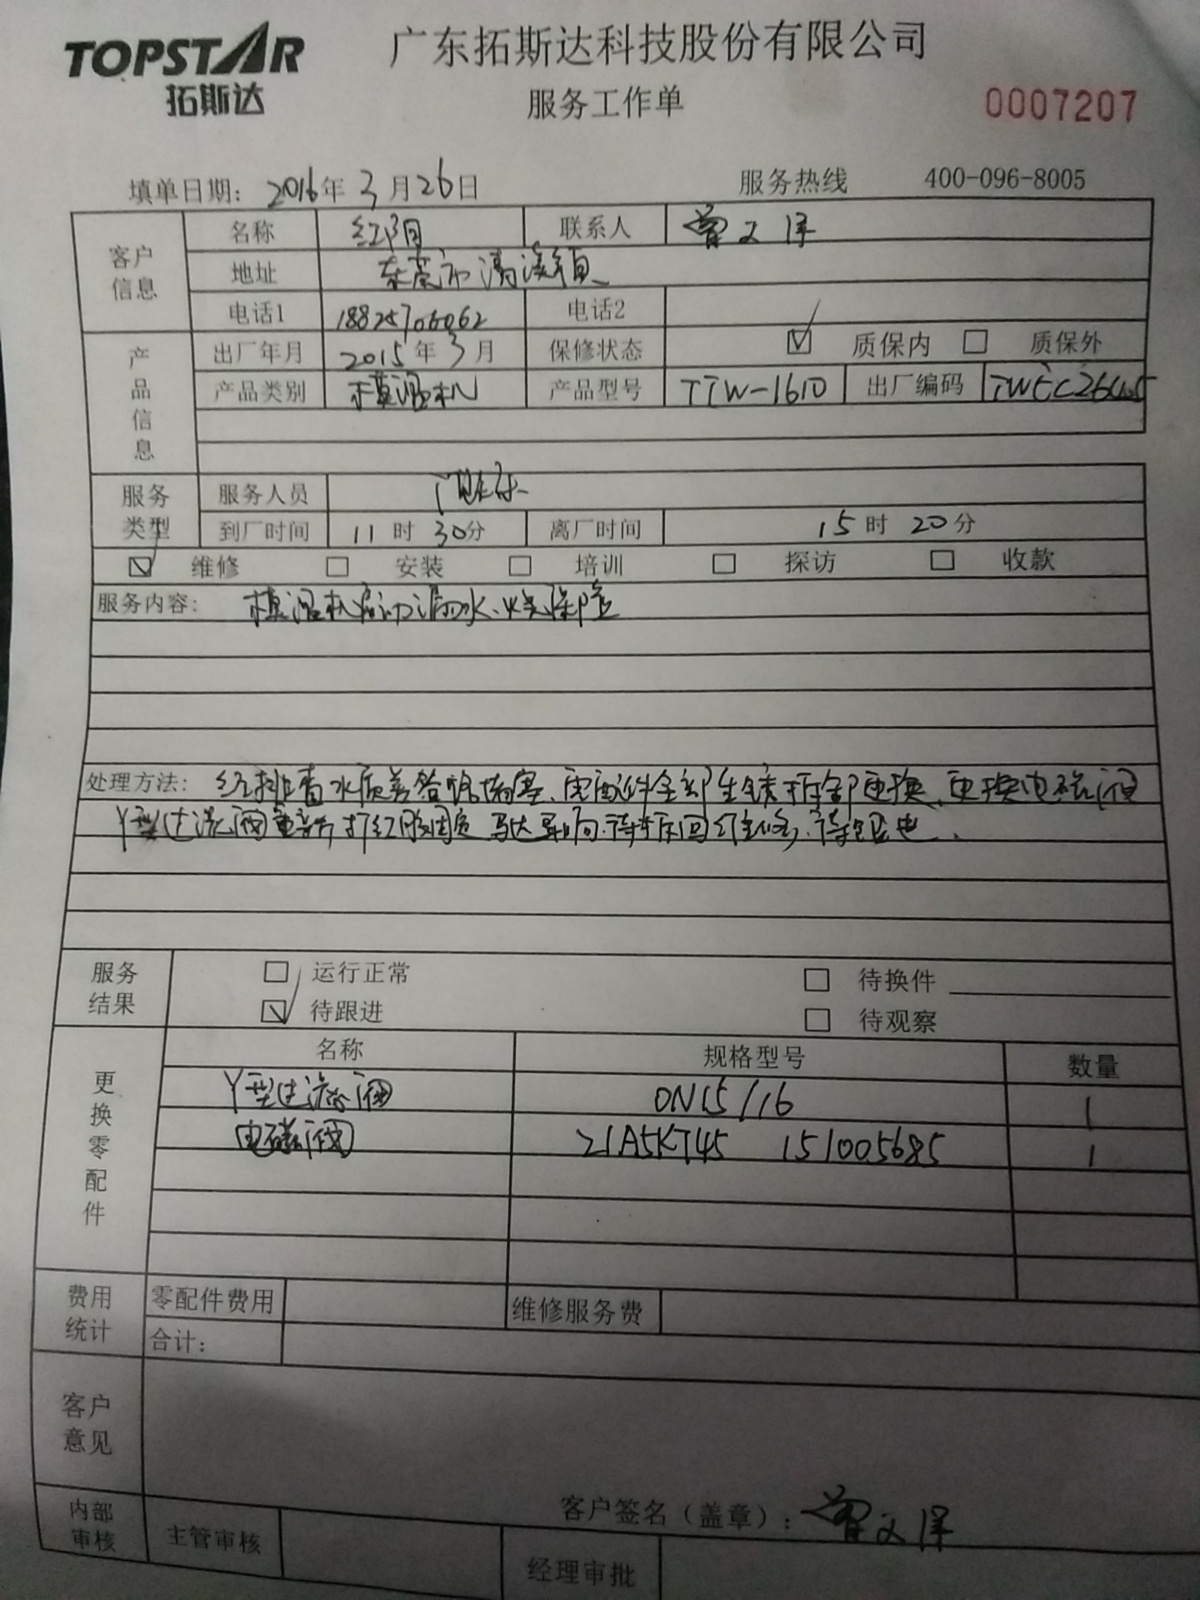 TOPSTAR
拓斯达
广东拓斯达科技股份有限公司
服务工作单
0007207
填单日期: 2016年 3月26日
服务热线 400-096-8005
客户信息
名称 红阳 联系人 曾文洋
地址 东莞市清溪镇
电话1 18825706062 电话2
产品信息
出厂年月 2015年3月 保修状态 ☑ 质保内 □ 质保外
产品类别 模温机 产品型号 TTW-1610 出厂编码
服务类型
服务人员
到厂时间 11时30分 离厂时间 15时20分
☑ 维修 □ 安装 □ 培训 □ 探访 □ 收款
服务内容: 模温机 漏水、烧保险
处理方法: 经排查水质差管路堵塞、配件全部生锈 更换、更换电磁阀
Y型过滤阀重新 打红胶固定 马达异响、待 回 维修、待 电、
服务结果
□ 运行正常 □ 待换件
☑ 待跟进 □ 待观察
更换零配件
名称 规格型号 数量
Y型过滤阀 DN15/16 1
电磁阀 21A5KT45 151005685 1
费用统计
零配件费用 维修服务费
合计:
客户意见
客户签名（盖章）: 曾文洋
内部审核
主管审核 经理审批